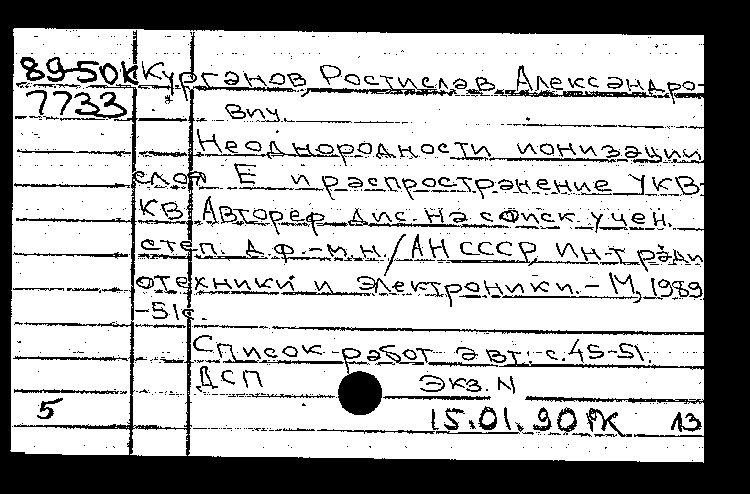 89-50к Курганов, Ростислав Александро-
7733
вич.
Неоднородности ионизации
слоя Е и распространение УКВ-
КВ: Автореф. дис. на соиск. учен.
степ. д.ф.-м.н. / АН СССР, Ин-т ради
отехники и электроники. - М., 1989
-51с.
Список работ авт.: с. 45-51.
ДСП Экз. N
5 15.01.90 РК 13